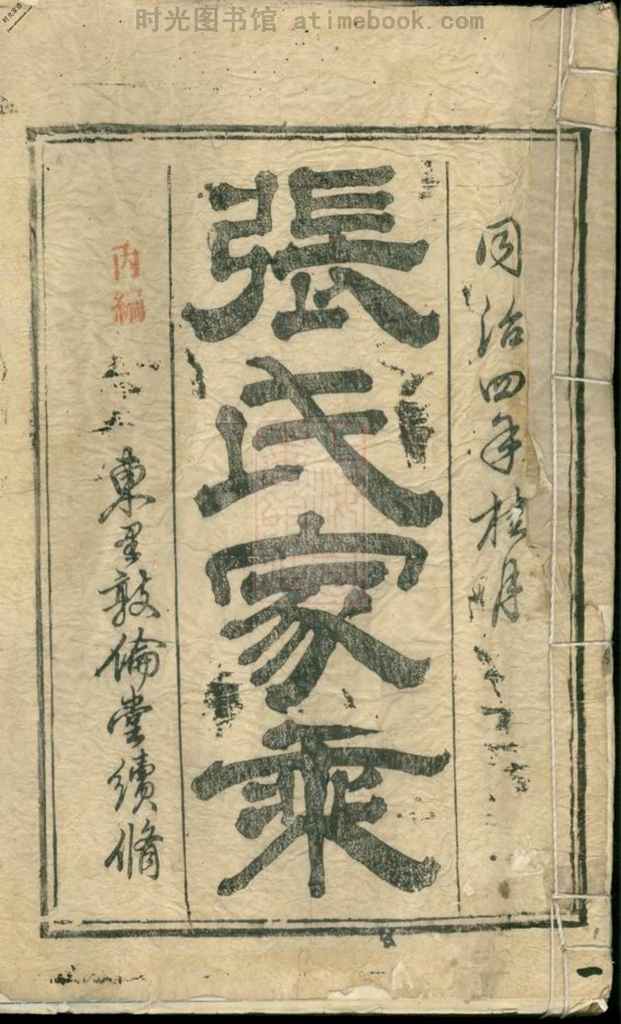 时光图书馆 atimebook.com
同治四年桂月
張氏家乘
内編
東里敦倫堂續脩
一